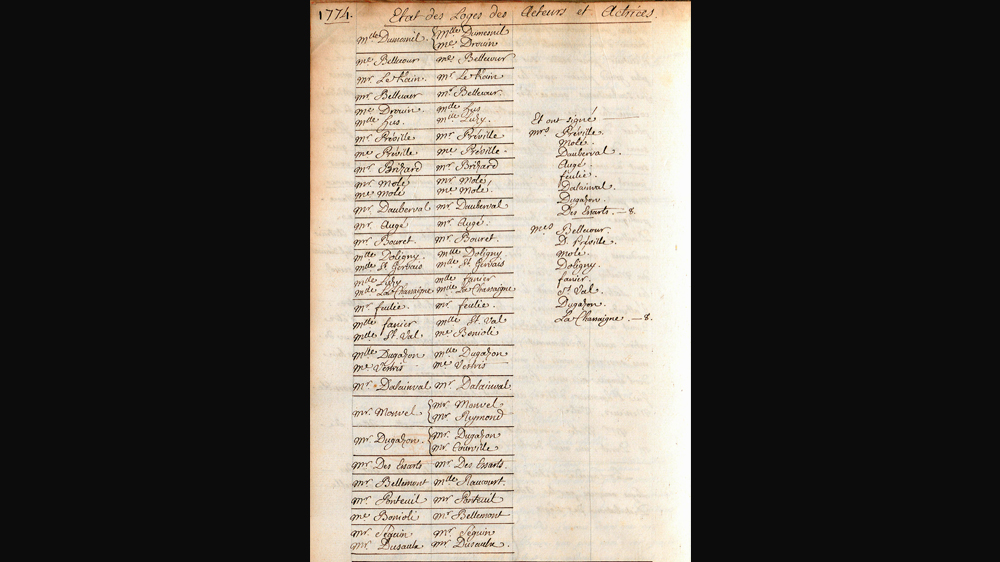 1774. Etat des Loges des Acteurs et Actrices.
mlle Dumesnil. mlle Dumesnil
me Drouin
me Bellecour me Bellecour
mr Le Kain. mr Le Kain.
mr Bellecour mr Bellecour.
me Drouin. mlle hus
mlle hus. mlle Luzy.
mr Préville mr Préville.
me Préville. me Préville.
mr Brizard mr Brizard
mr Molé mr Molé,
me Molé me Molé.
mr Dauberval mr Dauberval
mr Augé mr Augé.
mr Bouret. mr Bouret.
mlle Doligny. mlle Doligny
mlle St. Gervais mlle St. Gervais
mlle Luzy mlle fanier
mlle La Chassaigne mlle La Chassaigne
mr feulie. mr feulie.
mlle fanier mlle St. Val
mlle St. Val. me Bonioli
mlle Dugazon mlle Dugazon
me Vestris me Vestris
mr Dalainval mr Dalainval.
mr Monvel mr Monvel
mr Raymond
mr Dugazon. mr Dugazon
mr Courville.
mr Des Essarts mr Des Essarts.
mr Bellemont mlle Raucourt.
mr Ponteuil mr Ponteuil
me Bonioli mr Bellemont
mr Seguin mr Seguin
mr Dusaulx mr Dusaulx.
Et ont signé
mrs Préville.
Molé.
Dauberval.
Augé.
feulie.
Dalainval.
Dugazon.
Des Essarts. — 8.
mes Bellecour.
D. Préville.
Molé.
Doligny.
fanier.
St Val.
Dugazon.
La Chassaigne. — 8.